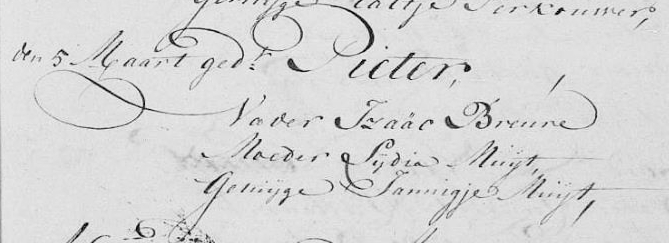 Getuijge Kerkouwer,
den 5 Maart gedt. Pieter,
Vader Izaäc Breure
Moeder Lijdia Muijt,
Getuijge Jannigje Muijt,